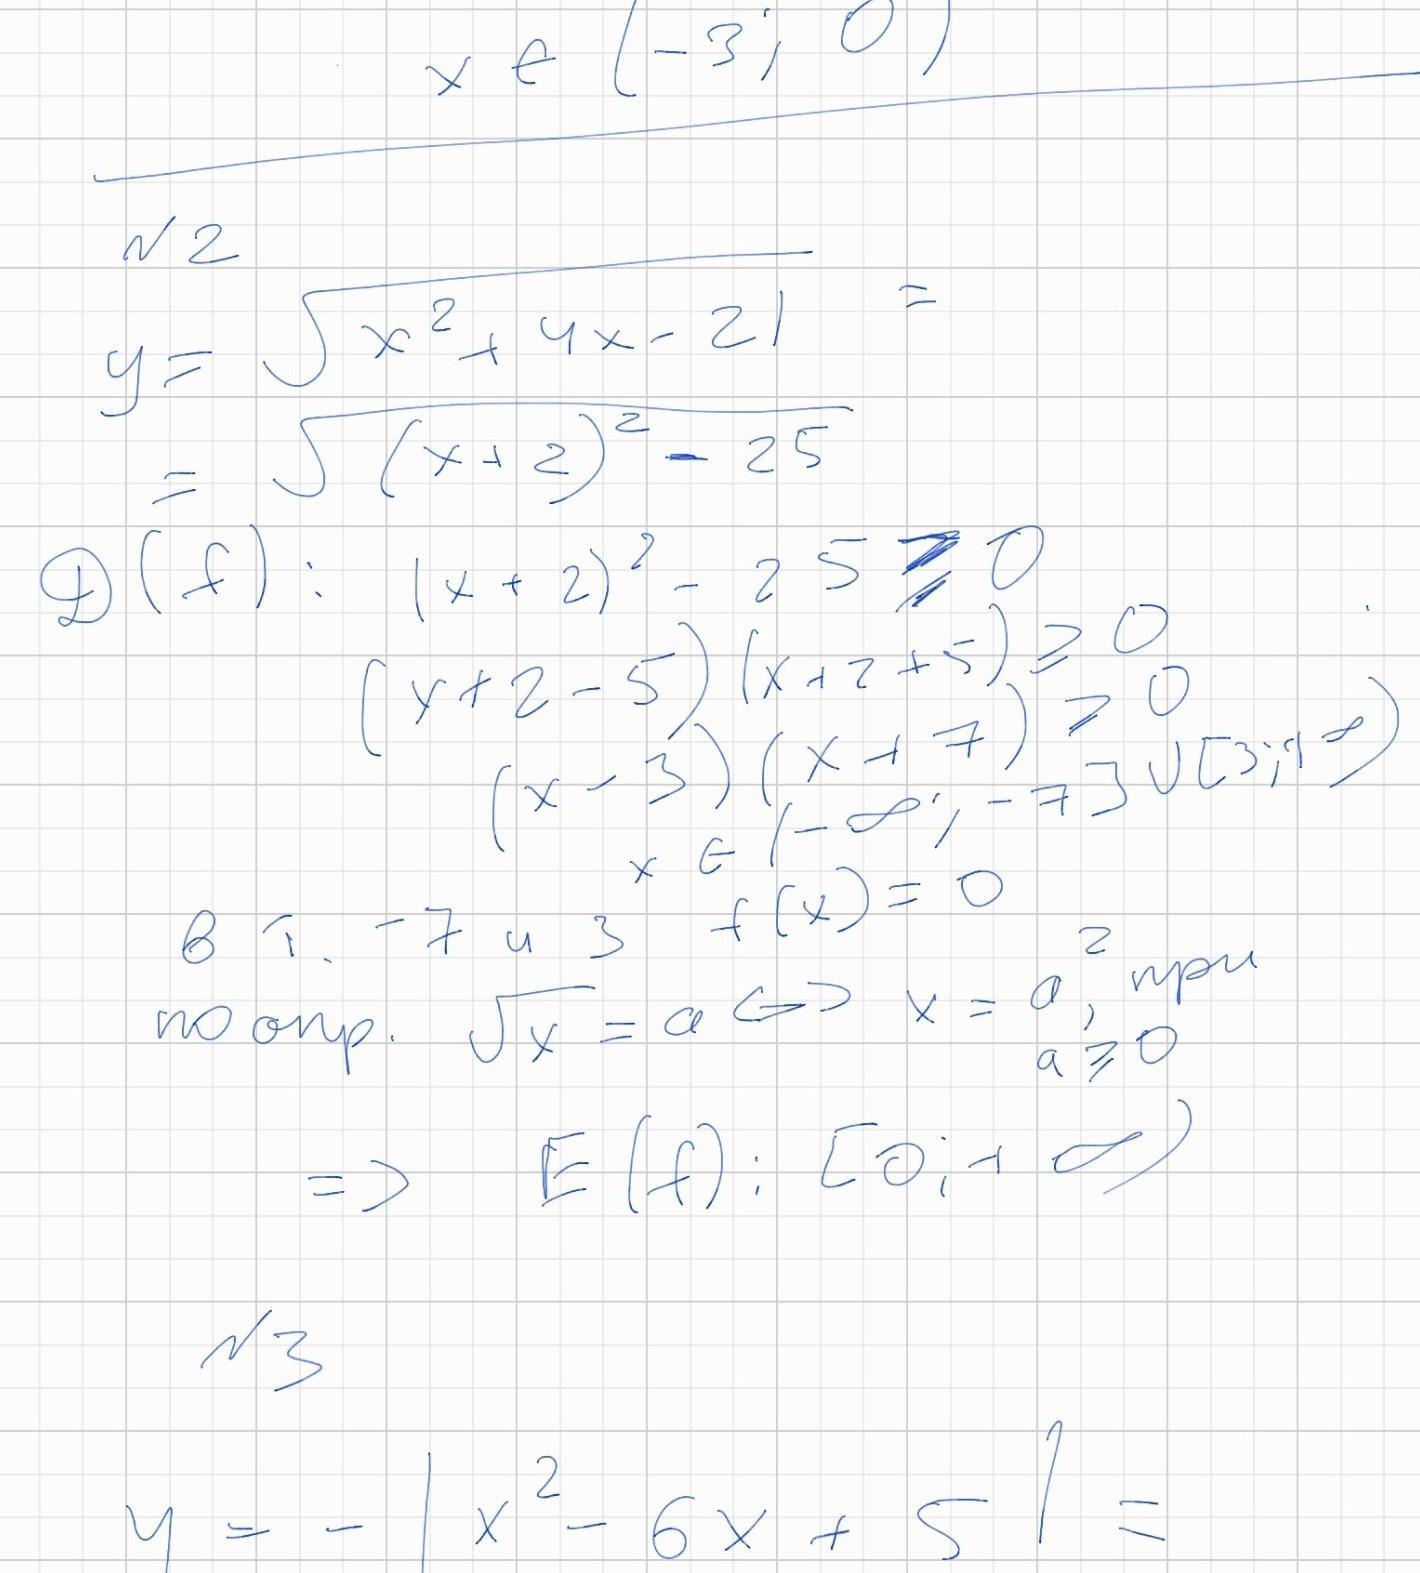 x ∈ (-3; 0)
N2
y = √(x² + 4x - 21) =
= √((x + 2)² - 25)
D(f): (x + 2)² - 25 ≥ 0
(x + 2 - 5)(x + 2 + 5) ≥ 0
(x - 3)(x + 7) ≥ 0
x ∈ (-∞; -7] ∪ [3; +∞)
в т. -7 и 3 f(x) = 0
по опр. √x = a <=> x = a², при
a ≥ 0
=> E(f): [0; +∞)
N3
y = -|x² - 6x + 5| =